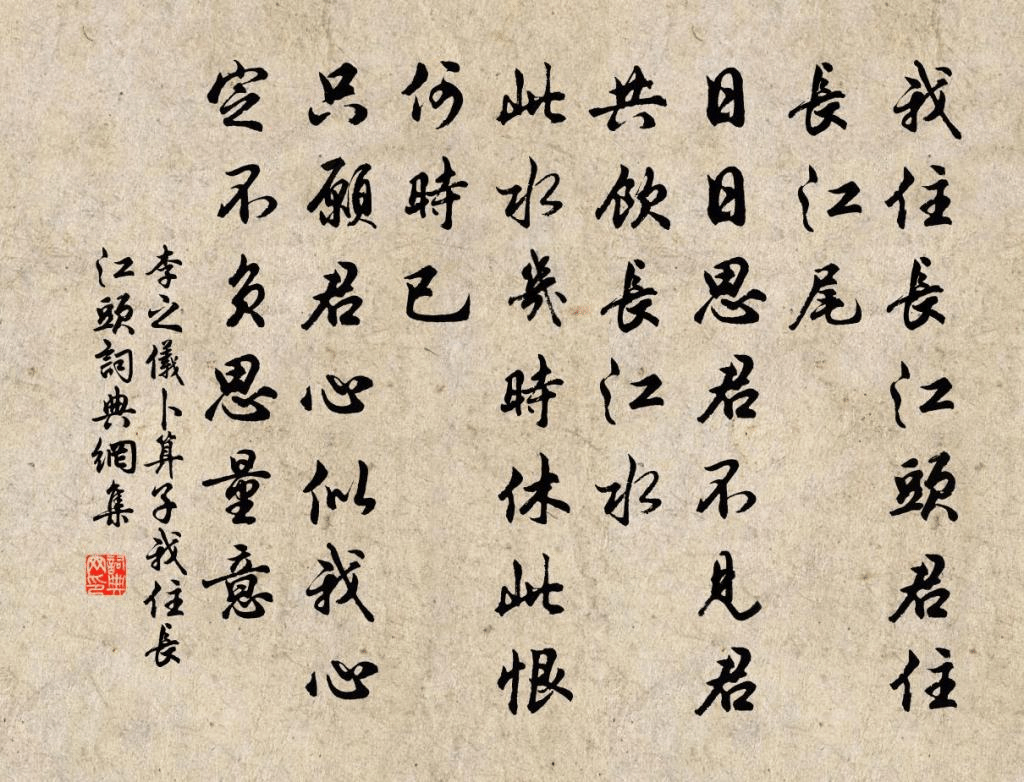 我住長江頭君住
長江尾
日日思君不見君
共飲長江水
此水幾時休此恨
何時已
只願君心似我心
定不負思量意
李之儀卜算子我住長
江頭詞典網集
詞典
网印